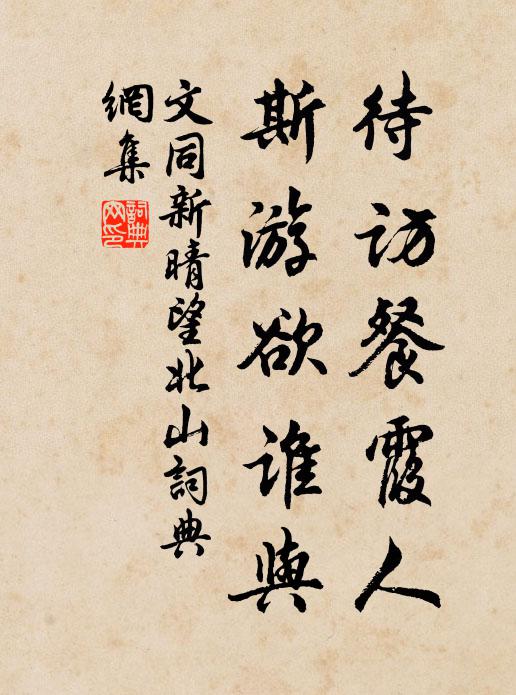 待访餐霞人
斯游欲谁與
文同新晴望北山詞典
網集
詞典
网印